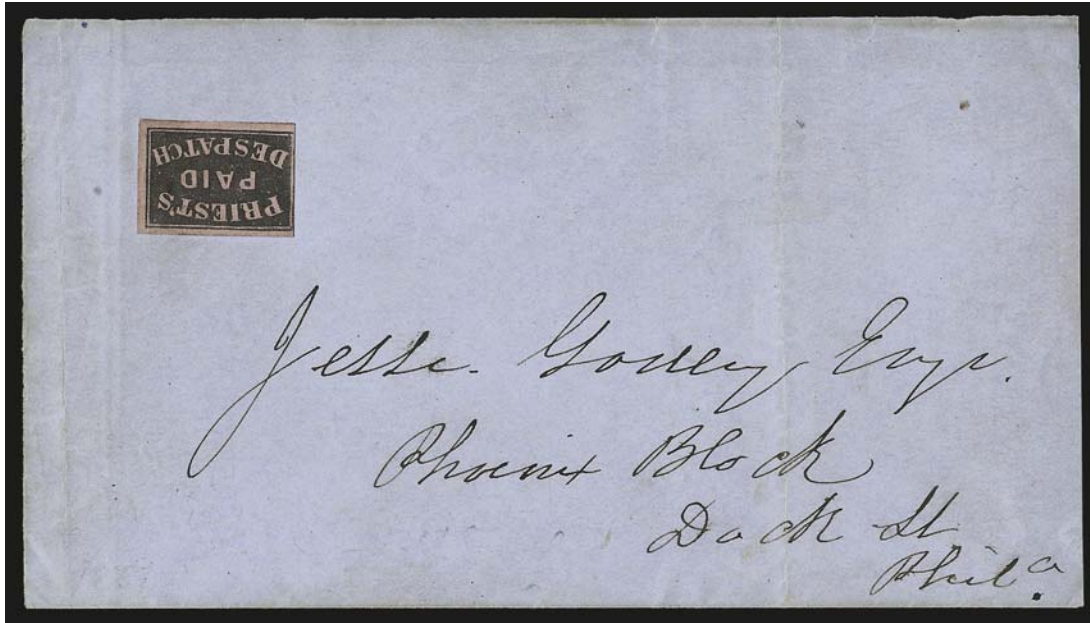 PRIEST'S
PAID
DESPATCH
Jesse Esqr.
Phoenix Block
Dock St
Phila